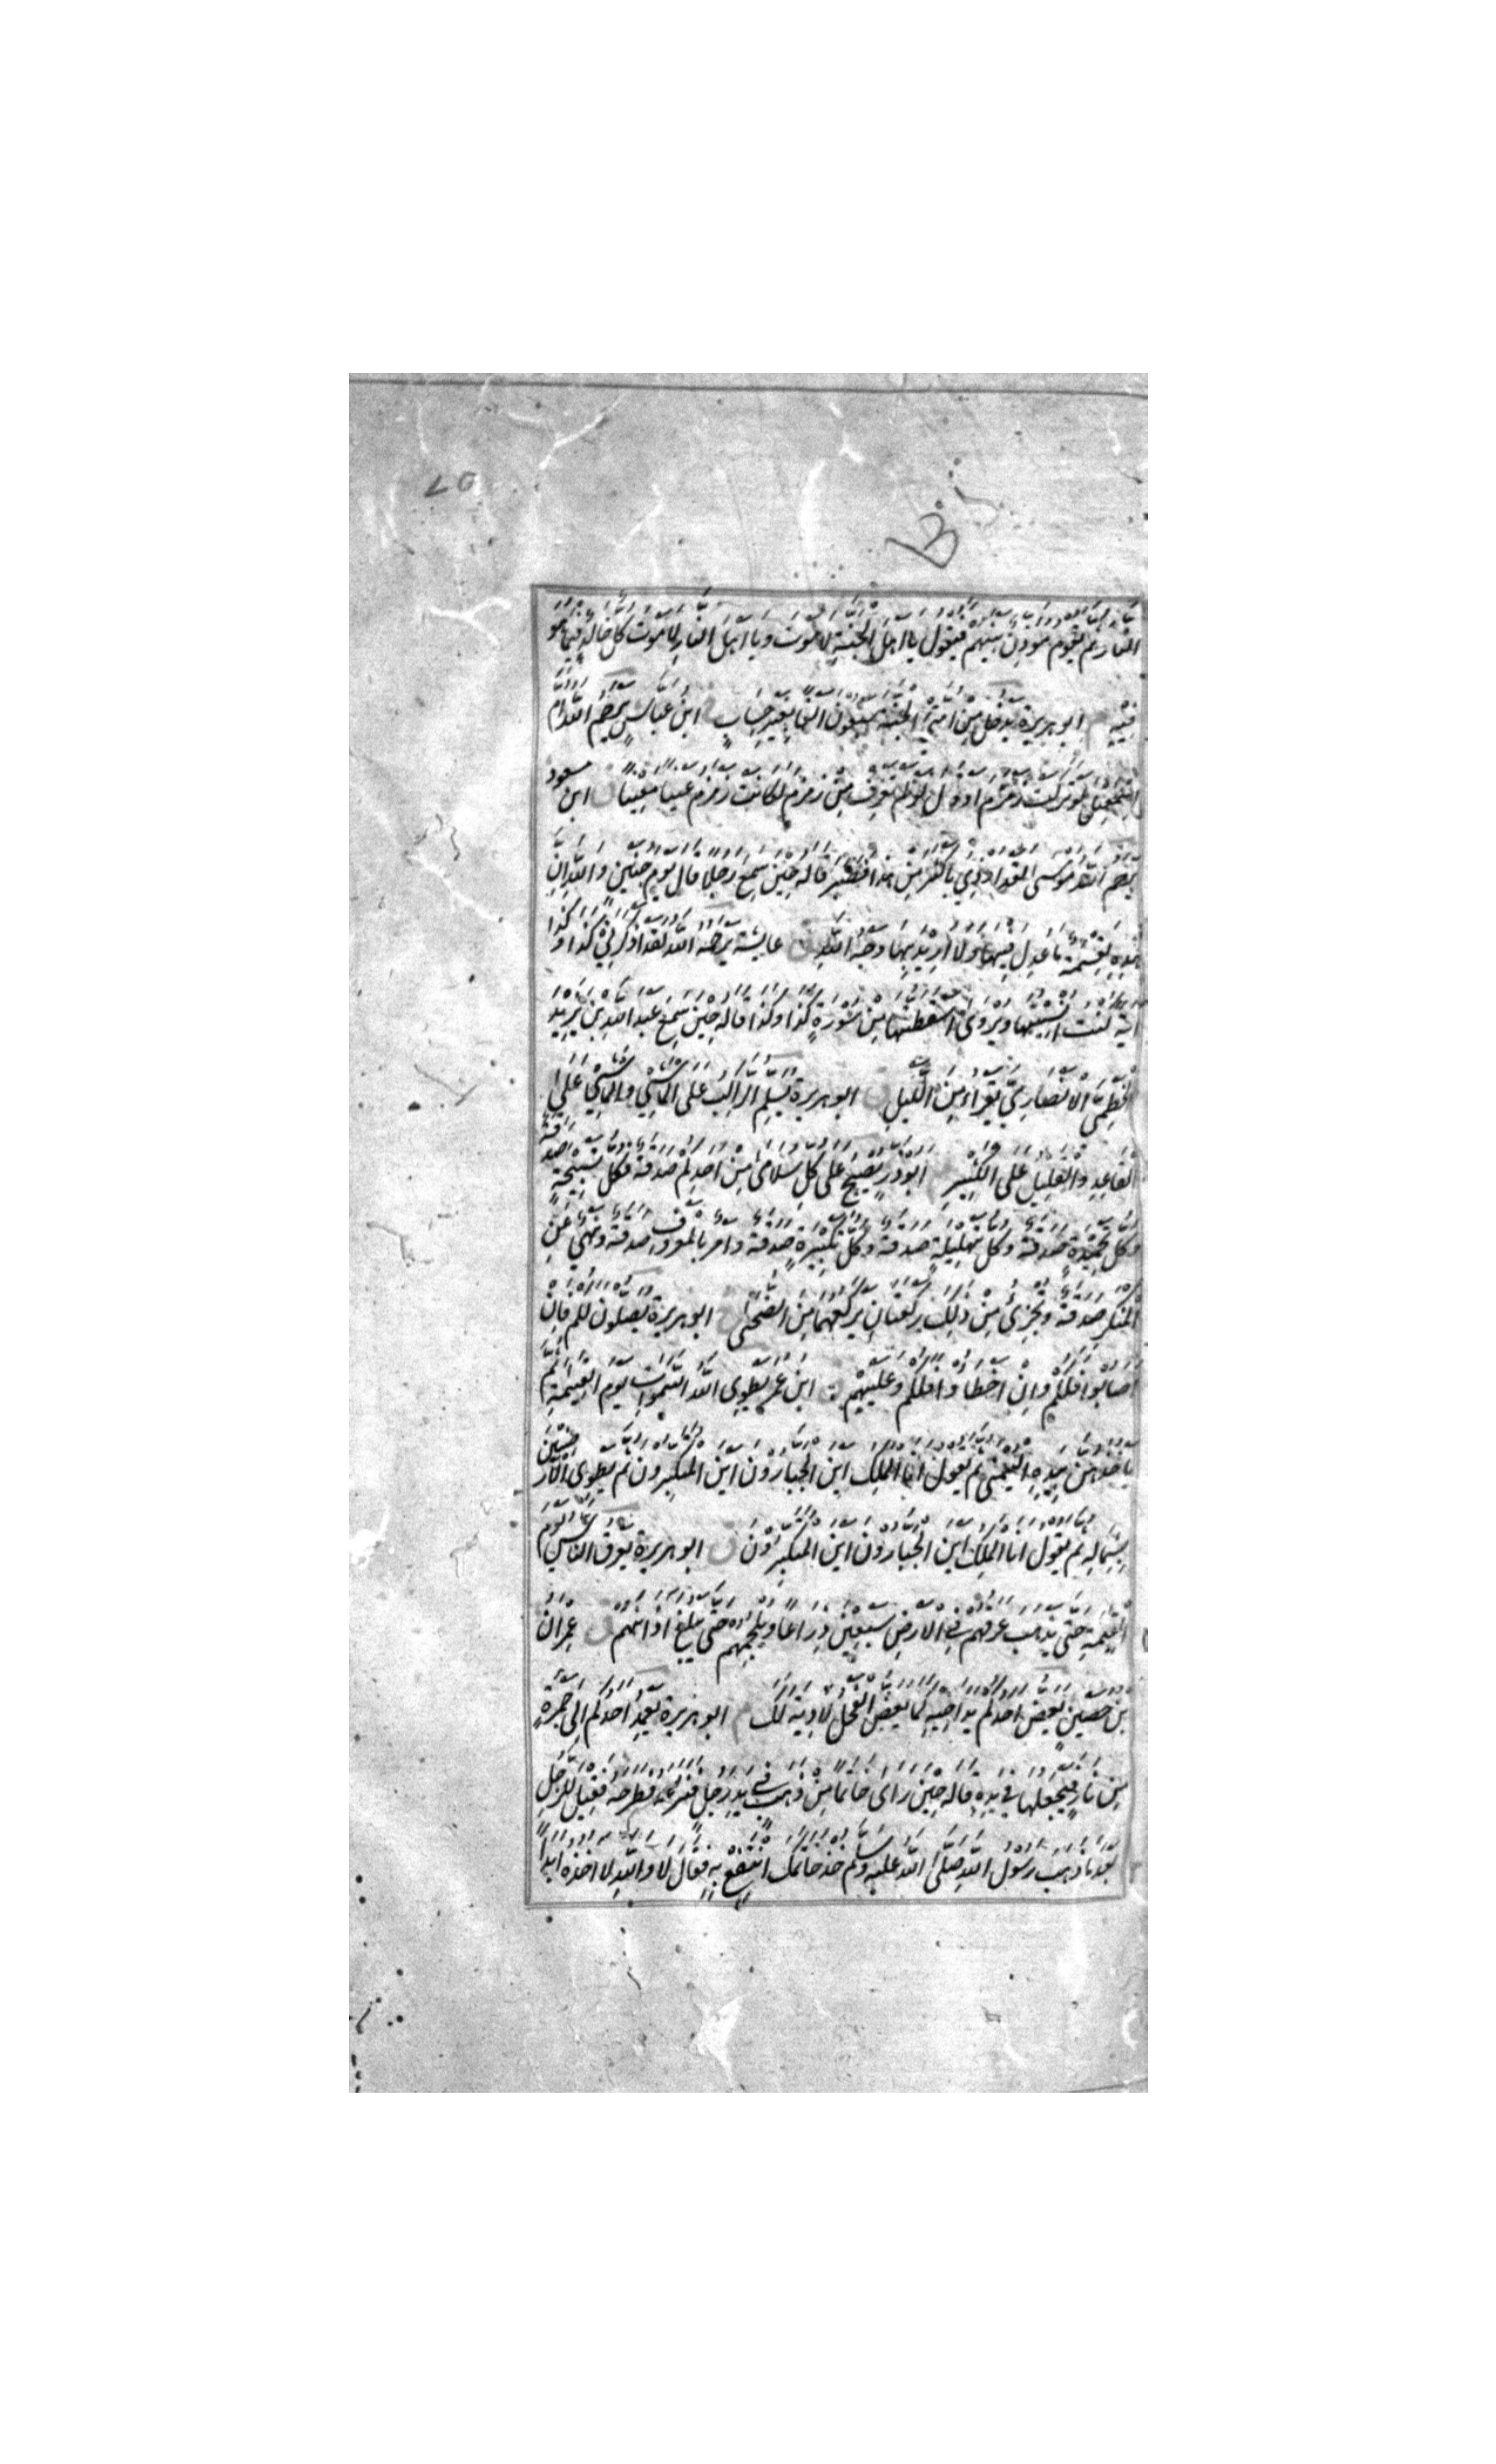 النار ثم يقوم موذن بينهم فيقول يا اهل الجنة لا موت ويا اهل النار لا موت كل خالد فيما هو
فيه م ابو هريرة يدخل من امتي الجنة سبعون الفا بغير حساب ابن عباس يرحم الله ام
اسمعيل لو تركت زمزم او قال لو لم تغرف من زمزم لكانت زمزم عينا معينا ق ابن مسعود
يرحم الله موسى لقد اوذي باكثر من هذا فصبر قاله حين سمع رجلا قال يوم حنين والله ان
هذه لقسمة ما عدل فيها ولا اريد بها وجه الله ق عايشة يرحمه الله لقد اذكرني كذا وكذا
اية كنت انسيتها ويروى اسقطتها من سورة كذا وكذا قاله حين سمع عبد الله بن يزيد
الخطمي الانصاري يقراء من الليل ق ابو هريرة يسلم الراكب على الماشي والماشي على
القاعد والقليل على الكثير ابو ذر يصبح على كل سلامى من احدكم صدقة فكل تسبيحة صدقة
وكل تحميدة صدقة وكل تهليلة صدقة وكل تكبيرة صدقة وامر بالمعروف صدقة ونهي عن
المنكر صدقة وتجزئ من ذلك ركعتان يركعهما من الضحى ابو هريرة يصلون لكم فان
اصابوا فلكم وان اخطاوا فلكم وعليهم ابن عمر يطوى الله السموات يوم القيمة ثم
ياخذهن بيده اليمنى ثم يقول انا الملك اين الجبارون اين المتكبرون ثم يطوى الارضين
بشماله ثم يقول انا الملك اين الجبارون اين المتكبرون ق ابو هريرة يعرق الناس يوم
القيمة حتى يذهب عرقهم في الارض سبعين ذراعا ويلجمهم حتى يبلغ اذانهم ق عمران
بن حصين يعض احدكم يد اخيه كما يعض الفحل لا دية لك م ابو هريرة يعمد احدكم الى جمرة
من نار فيجعلها في يده قاله حين راى خاتما من ذهب في يد رجل فنزعه فطرحه فقيل للرجل
بعد ما ذهب رسول الله صلى الله عليه وسلم خذ خاتمك انتفع به فقال لا والله لا اخذه ابدا